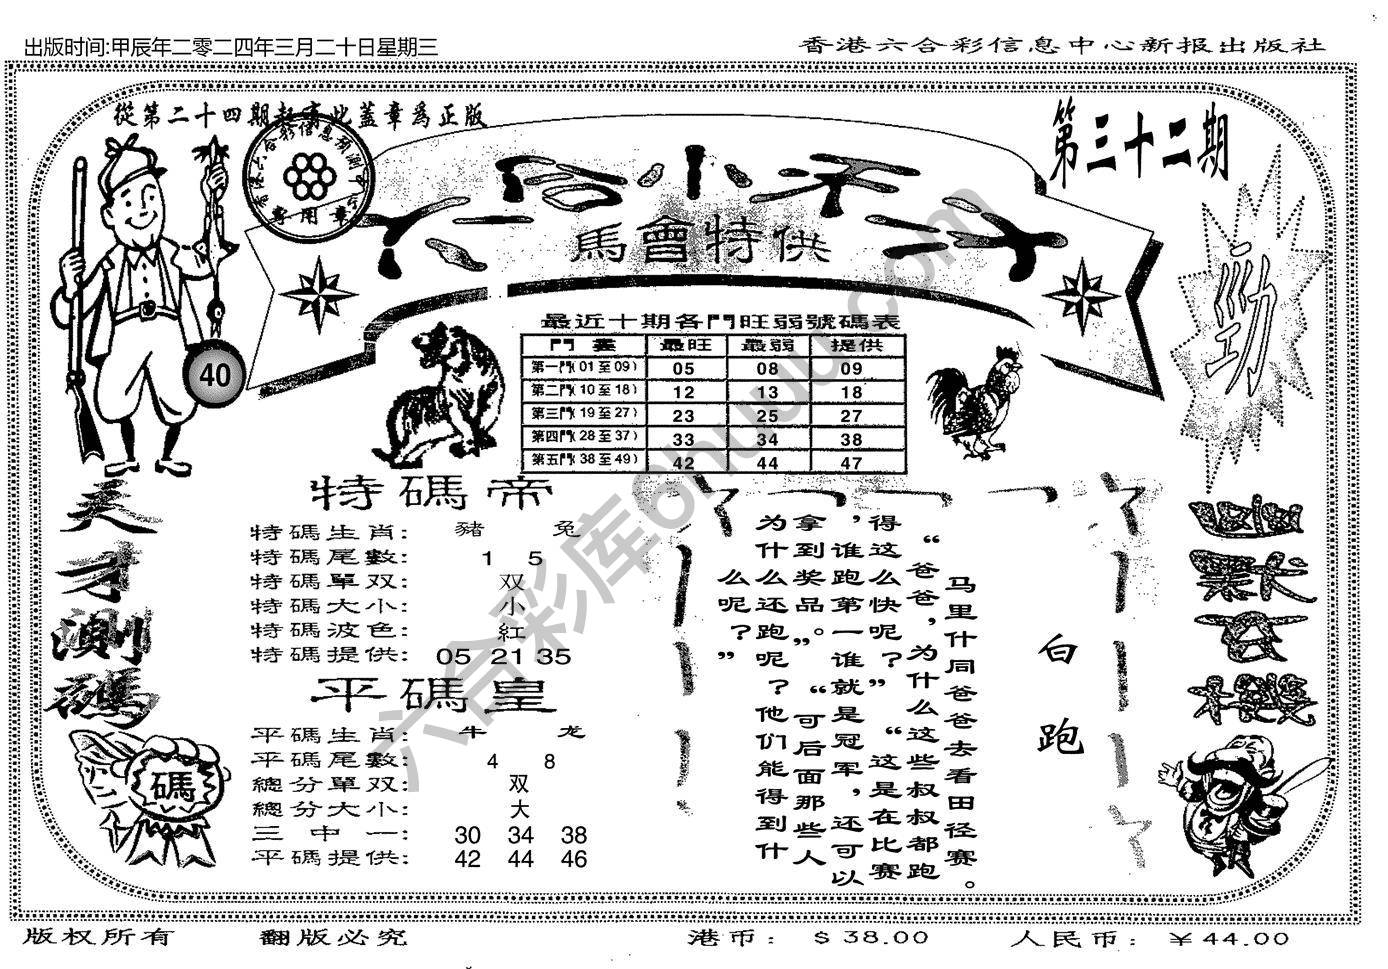 出版时间:甲辰年二零二四年三月二十日星期三
香港六合彩信息中心新报出版社
從第二十四期起寄此蓋章為正版
專用章
第三十二期
六合小天
馬會特供
勁
40
最近十期各門旺弱號碼表
最旺 最弱 提供
第一門(01至09) 05 08 09
第二門(10至18) 12 13 18
第三門(19至27) 23 25 27
第四門(28至37) 33 34 38
第五門(38至49) 42 44 47
天才測碼
碼
特碼帝
特碼生肖: 豬 兔
特碼尾數: 1 5
特碼單双: 双
特碼大小: 小
特碼波色: 紅
特碼提供: 05 21 35
平碼皇
平碼生肖: 牛 龙
平碼尾數: 4 8
總分單双: 双
總分大小: 大
三中一: 30 34 38
平碼提供: 42 44 46
白跑
马里什同爸爸去看田径赛。
“爸爸,为什么这些叔叔都跑
得这么快呢?”“这是在比赛
,谁跑第一谁就是冠军,还可以
拿到奖品。”“可后面那些人
为什么还跑呢?他们能得到什
么呢?”
六合彩库6huuu.com
版权所有
翻版必究
港币: $38.00
人民币: ¥44.00